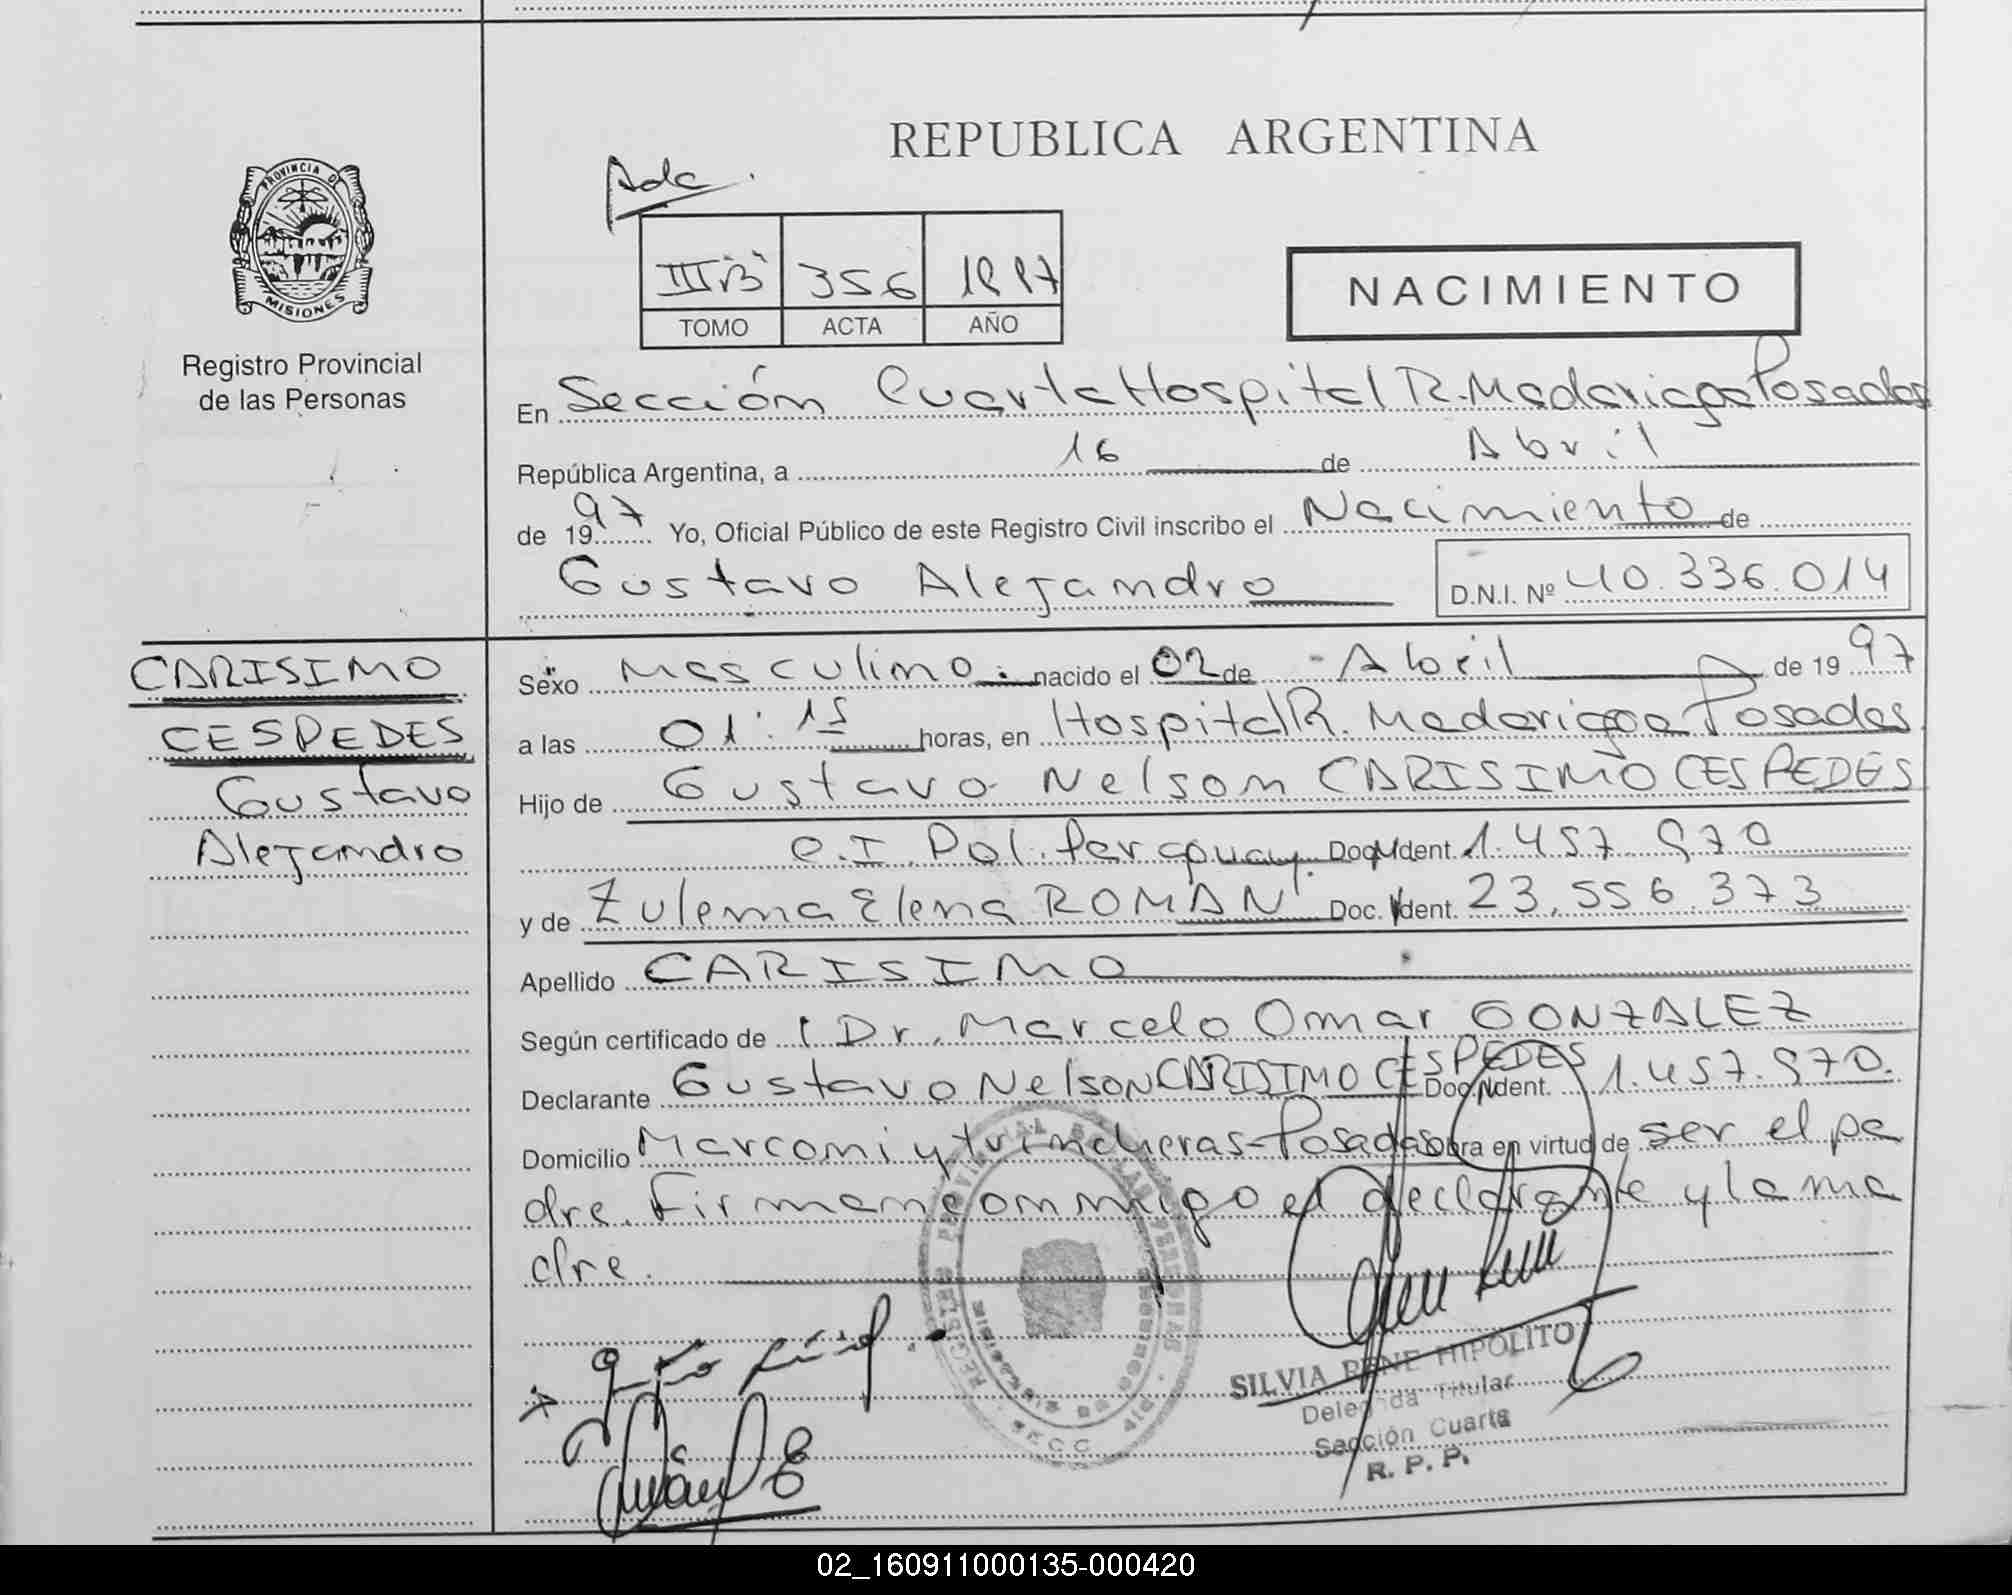 REPUBLICA ARGENTINA
PROVINCIA D
MISIONES
Registro Provincial
de las Personas
Ada.
III"B" 356 1997
TOMO ACTA AÑO
NACIMIENTO
En Sección Cuarta Hospital R. Madariaga Posadas
República Argentina, a 16 de Abril
de 1997 Yo, Oficial Público de este Registro Civil inscribo el Nacimiento de
Gustavo Alejandro D.N.I. Nº 40.336.014
CARISIMO
CESPEDES
Gustavo
Alejandro
Sexo Masculino. nacido el 02 de Abril de 1997
a las 01:15 horas, en Hospital R. Madariaga Posadas
Hijo de Gustavo Nelson CARISIMO CESPEDES
C.I. Pol. Paraguay. Doc. Ident. 1.457.970
y de Zulema Elena ROMAN Doc. Ident. 23.556.373
Apellido CARISIMO
Según certificado de Dr. Marcelo Omar GONZALEZ
Declarante Gustavo Nelson CARISIMO CESPEDES Doc. Ident. 1.457.970.
Domicilio Marconi y trincheras-Posadas obra en virtud de ser el pa
dre. Firman conmigo el declarante y la ma
dre.
SILVIA RENE HIPOLITO
Delegada Titular
Sección Cuarta
R. P. P.
02_160911000135-000420